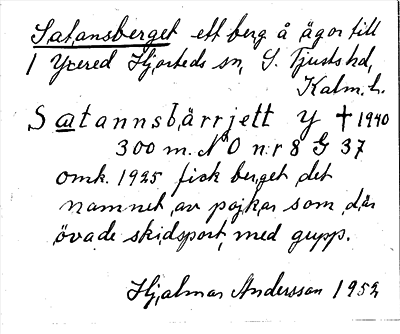 Satansberget ett berg å ägor till
1 Yxered Hjorteds sn, S. Tjusts hd,
Kalm. l.
Satannsbärrjett y † 1940
300 m. N O nr 8 G 37
omk. 1925 fick berget det
namnet av pojkar som där
övade skidsport med gupp.
Hjalmar Andersson 1952